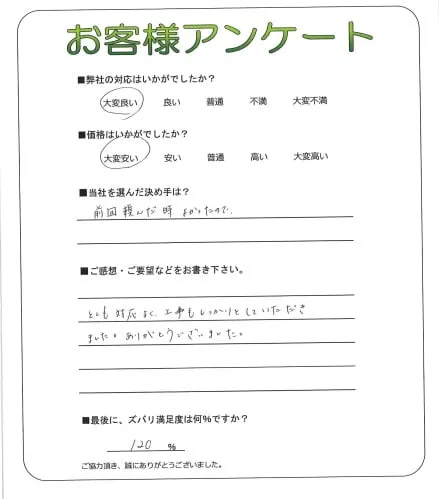 お客様アンケート
■弊社の対応はいかがでしたか？
大変良い 良い 普通 不満 大変不満
■価格はいかがでしたか？
大変安い 安い 普通 高い 大変高い
■当社を選んだ決め手は？
前回頼んだ時 よかったので、
■ご感想・ご要望などをお書き下さい。
とても対応よく、工事もしっかりとしていただき
ました。ありがとうございました。
■最後に、ズバリ満足度は何％ですか？
120 %
ご協力頂き、誠にありがとうございました。